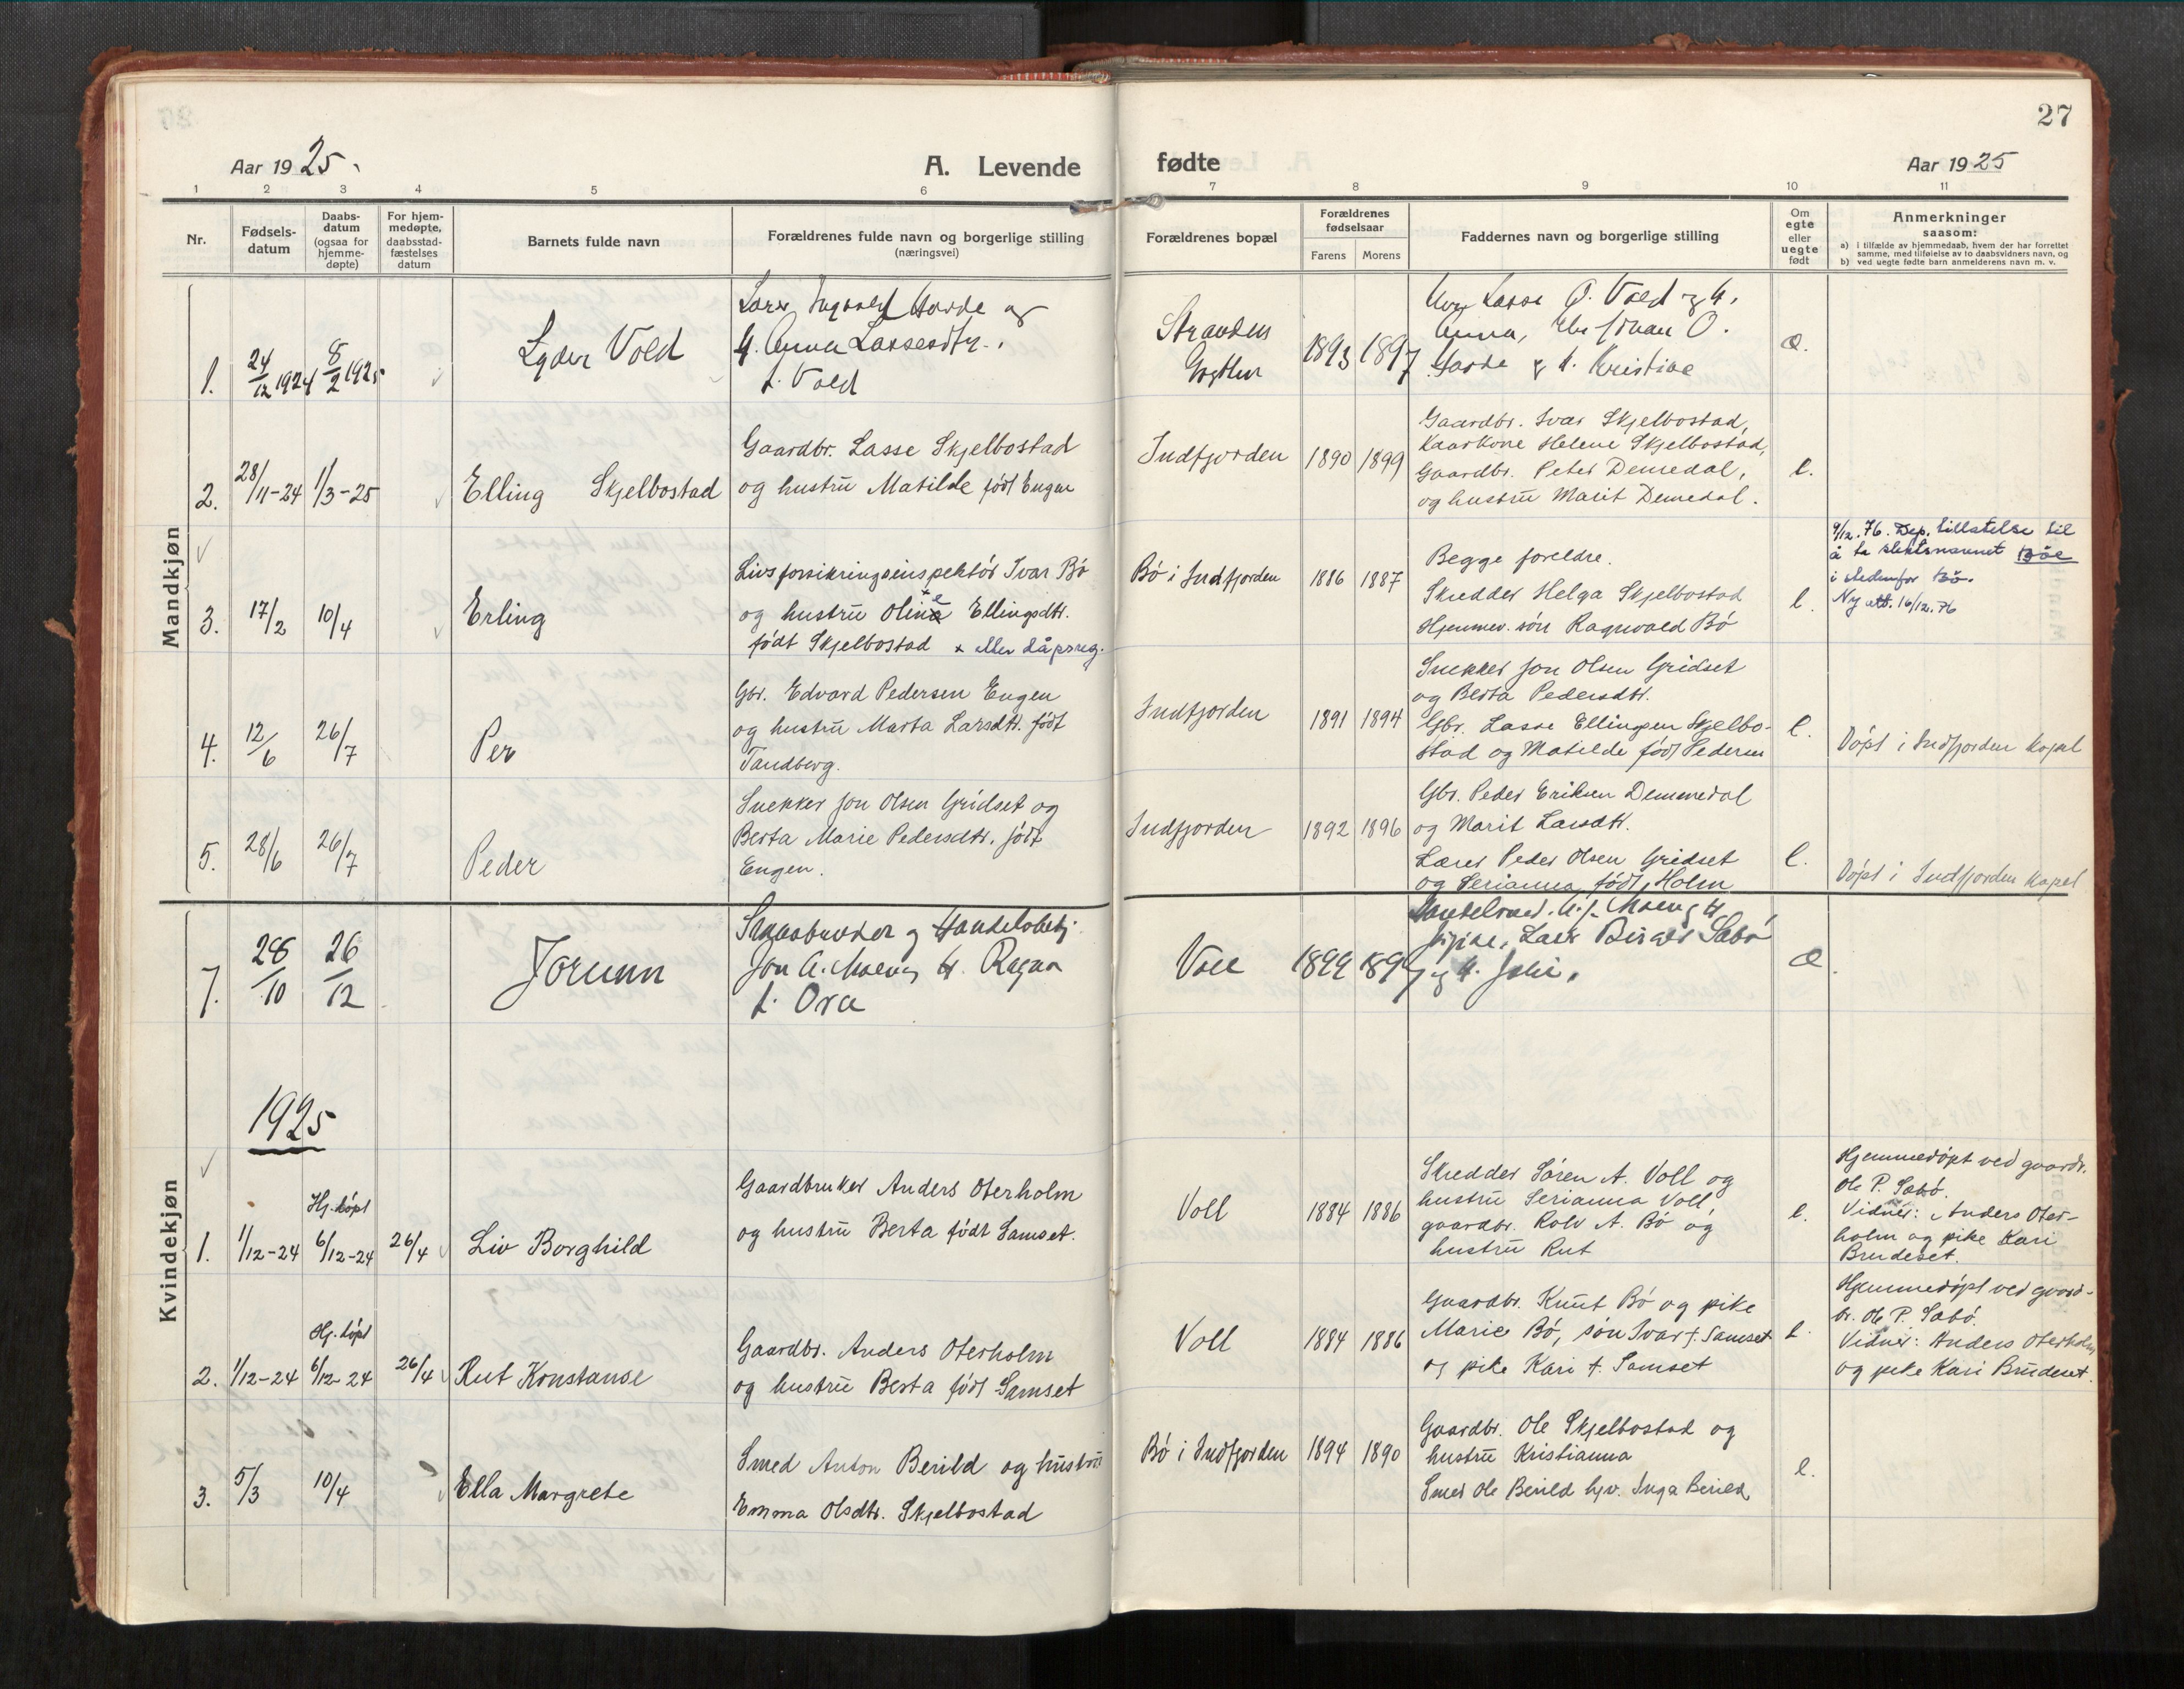 27
Aar 1925.
A. Levende
fødte
Aar 1925
1 2 3 4 5 6 7 8 9 10 11
Nr.
Fødsels-
datum
Daabs-
datum
(ogsaa for
hjemme-
døpte)
For hjem-
medøpte,
daabsstad-
fæstelses
datum
Barnets fulde navn
Forældrenes fulde navn og borgerlige stilling
(næringsvei)
Forældrenes bopæl
Forældrenes
fødselsaar
Farens Morens
Faddernes navn og borgerlige stilling
Om
egte
eller
uegte
født
Anmerkninger
saasom:
a) i tilfælde av hjemmedaab, hvem der har forrettet
samme, med tilføielse av to daabsvidners navn, og
b) ved uegte fødte barn anmelderens navn m. v.
Mandkjøn
1.
24/12 1924
8/2 1925
Lyder Vold
og
H. Anna Lassesdtr.
f. Vold
Stranden
1893 1897
Lasse O. Vold og H.
Anna, Johan O.
& H. Kristine
2.
28/11-24
1/3-25
Elling Skjelbostad
Gaardbr. Lasse Skjelbostad
og hustrū Matilde født Engen
Indfjorden
1890 1899
Gaardbr. Ivar Skjelbostad,
Kaarkone Helene Skjelbostad,
Gaardbr. Peter Demedal,
og hustrū Marit Demedal.
e.
3.
17/2
10/4
Erling
Livsforsikringsinspektør Ivar Bø
og hustrū Oline Ellingsdtr.
født Skjelbostad x eller dåpsreg.
Bø i Indfjorden
1886 1887
Begge foreldre.
Skredder Helga Skjelbostad
Hjemmev. søn Ragnvald Bø
e.
9/12.76. Dep. tillatelse til
å ta slektsnavnet Bøe
i stedenfor Bø.
Ny att. 16/12.76
4.
12/6
26/7
Per
Gbr. Edvard Pedersen Engen
og hustrū Marta Larsdtr. født
Tandberg.
Indfjorden
1891 1894
Snekker Jon Olsen Gridset
og Berta Pedersdtr.
Gbr. Lasse Ellingsen Skjelbo-
stad og Matilde født Pedersen
e.
Døpt i Indfjorden kapel
5.
28/6
26/7
Peder
Snekker Jon Olsen Gridset og
Berta Marie Pedersdtr. født
Engen.
Indfjorden
1892 1896
Gbr. Peder Eriksen Demmedal
og Marit Larsdtr.
Lærer Peder Olsen Gridset
og Serianna født Holm
e.
Døpt i Indfjorden kapel
7.
28/10
26/12
Jorunn
Jon A. H. Ragna
f. Ora
Voll
1899 1897
Lars Birger Sæbø
og H.
1925
Kvindekjøn
1.
1/12-24
Hj. døpt
6/12-24
26/4
Liv Borghild
Gaardbruker Anders Oterholm
og hustrū Berta født Samset.
Voll
1884 1886
Skredder Søren A. Voll og
hustrū Serianna Voll,
gaardbr. Rolv A. Bø og
hustrū Rut
e.
Hjemmedøpt ved gaardbr.
Ole P. Sæbø.
Vidner: Anders Oter-
holm og pike Kari
Brudeset.
2.
1/12-24
Hj. døpt
6/12-24
26/4
Rut Konstanse
Gaardbr. Anders Oterholm
og hustrū Berta født Samset
Voll
1884 1886
Gaardbr. Knut Bø og pike
Marie Bø, søn Ivar f. Samset
og pike Kari f. Samset
e.
Hjemmedøpt ved gaard-
br. Ole P. Sæbø.
Vidner: Anders Oterholm
og pike Kari Brudeset.
3.
5/3
10/4
Ella Margrete
Smed Anton Berild og hustrū
Emma Olsdtr. Skjelbostad
Bø i Indfjorden
1894 1890
Gaardbr. Ole Skjelbostad og
hustrū Kristianna
Smed Ole Berild hjv. Inga Berild
e.